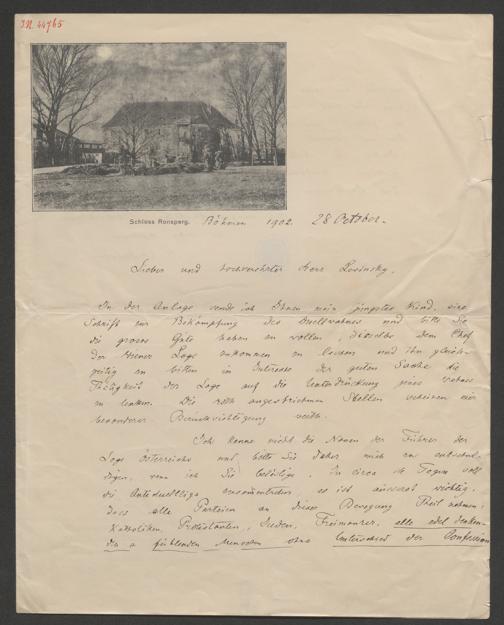 I.N. 44765
Schloss Ronsperg. Böhmen 1902. 28 October.
Lieber und hochverehrter Herr
In der Anlage sende ich Ihnen mein jüngstes Kind, eine
Schrift zur Bekämpfung des Duellwahnes und bitte Sie
die grosse Güte haben zu wollen, dieselbe dem Chef
der Wiener Loge zukommen zu lassen und ihn gleich-
zeitig zu bitten im Interesse der guten Sache die
Thätigkeit der Loge auf die Unterdrückung jenes Wahnes
zu lenken. Die roth angestrichenen Stellen
besonderer Berücksichtigung werth.
Ich kenne nicht die Namen der Führer der
Loge Österreichs und bitte Sie daher mich zu entschul-
digen, wenn ich Sie belästige. In circa Tagen soll
die Antiduellliga zusammentreten, es ist äusserst wichtig,
dass alle Parteien an dieser Bewegung Theil nehmen,
Katholiken, Protestanten, Juden, Freimaurer, alle edel denken-
den u fühlenden Menschen ohne Unterschied der Confession